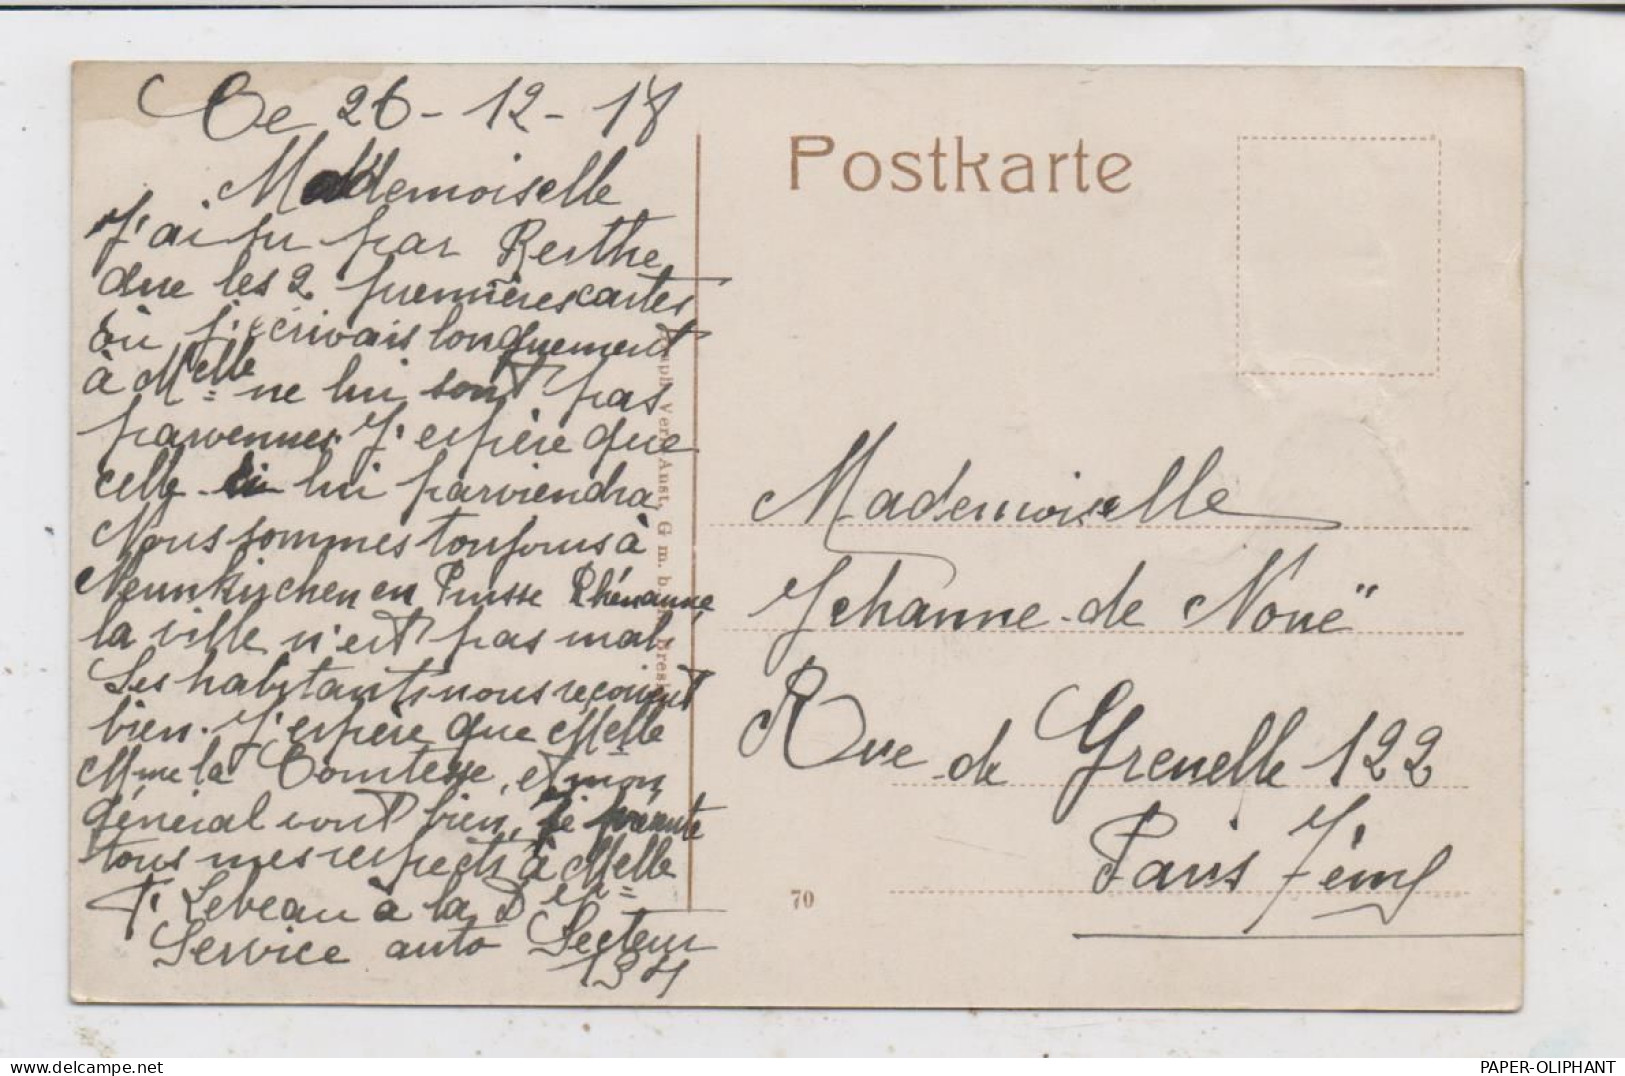 Ce 26-12-18
Mademoiselle
J'ai su par Berthe
que les 2 premières cartes
où j'écrivais longuement
à Melle ne lui sont pas
parvennes. J'espère que
celle ci lui parviendra
Nous sommes toujours à
Neunkirchen en Prusse Rhénanne,
la ville n'est pas mal,
Les habitants nous reçoivent
bien. J'espère que Melle
Mme la Comtesse, et mon
général vont bien, je présente
tous mes respects à Melle
F. Lebeau à la Don
Service auto Secteur
134
Postkarte
Mademoiselle
Jehanne de Nouë
Rue de Grenelle 122
Paris 7ème
70
PAPER-OLIPHANT